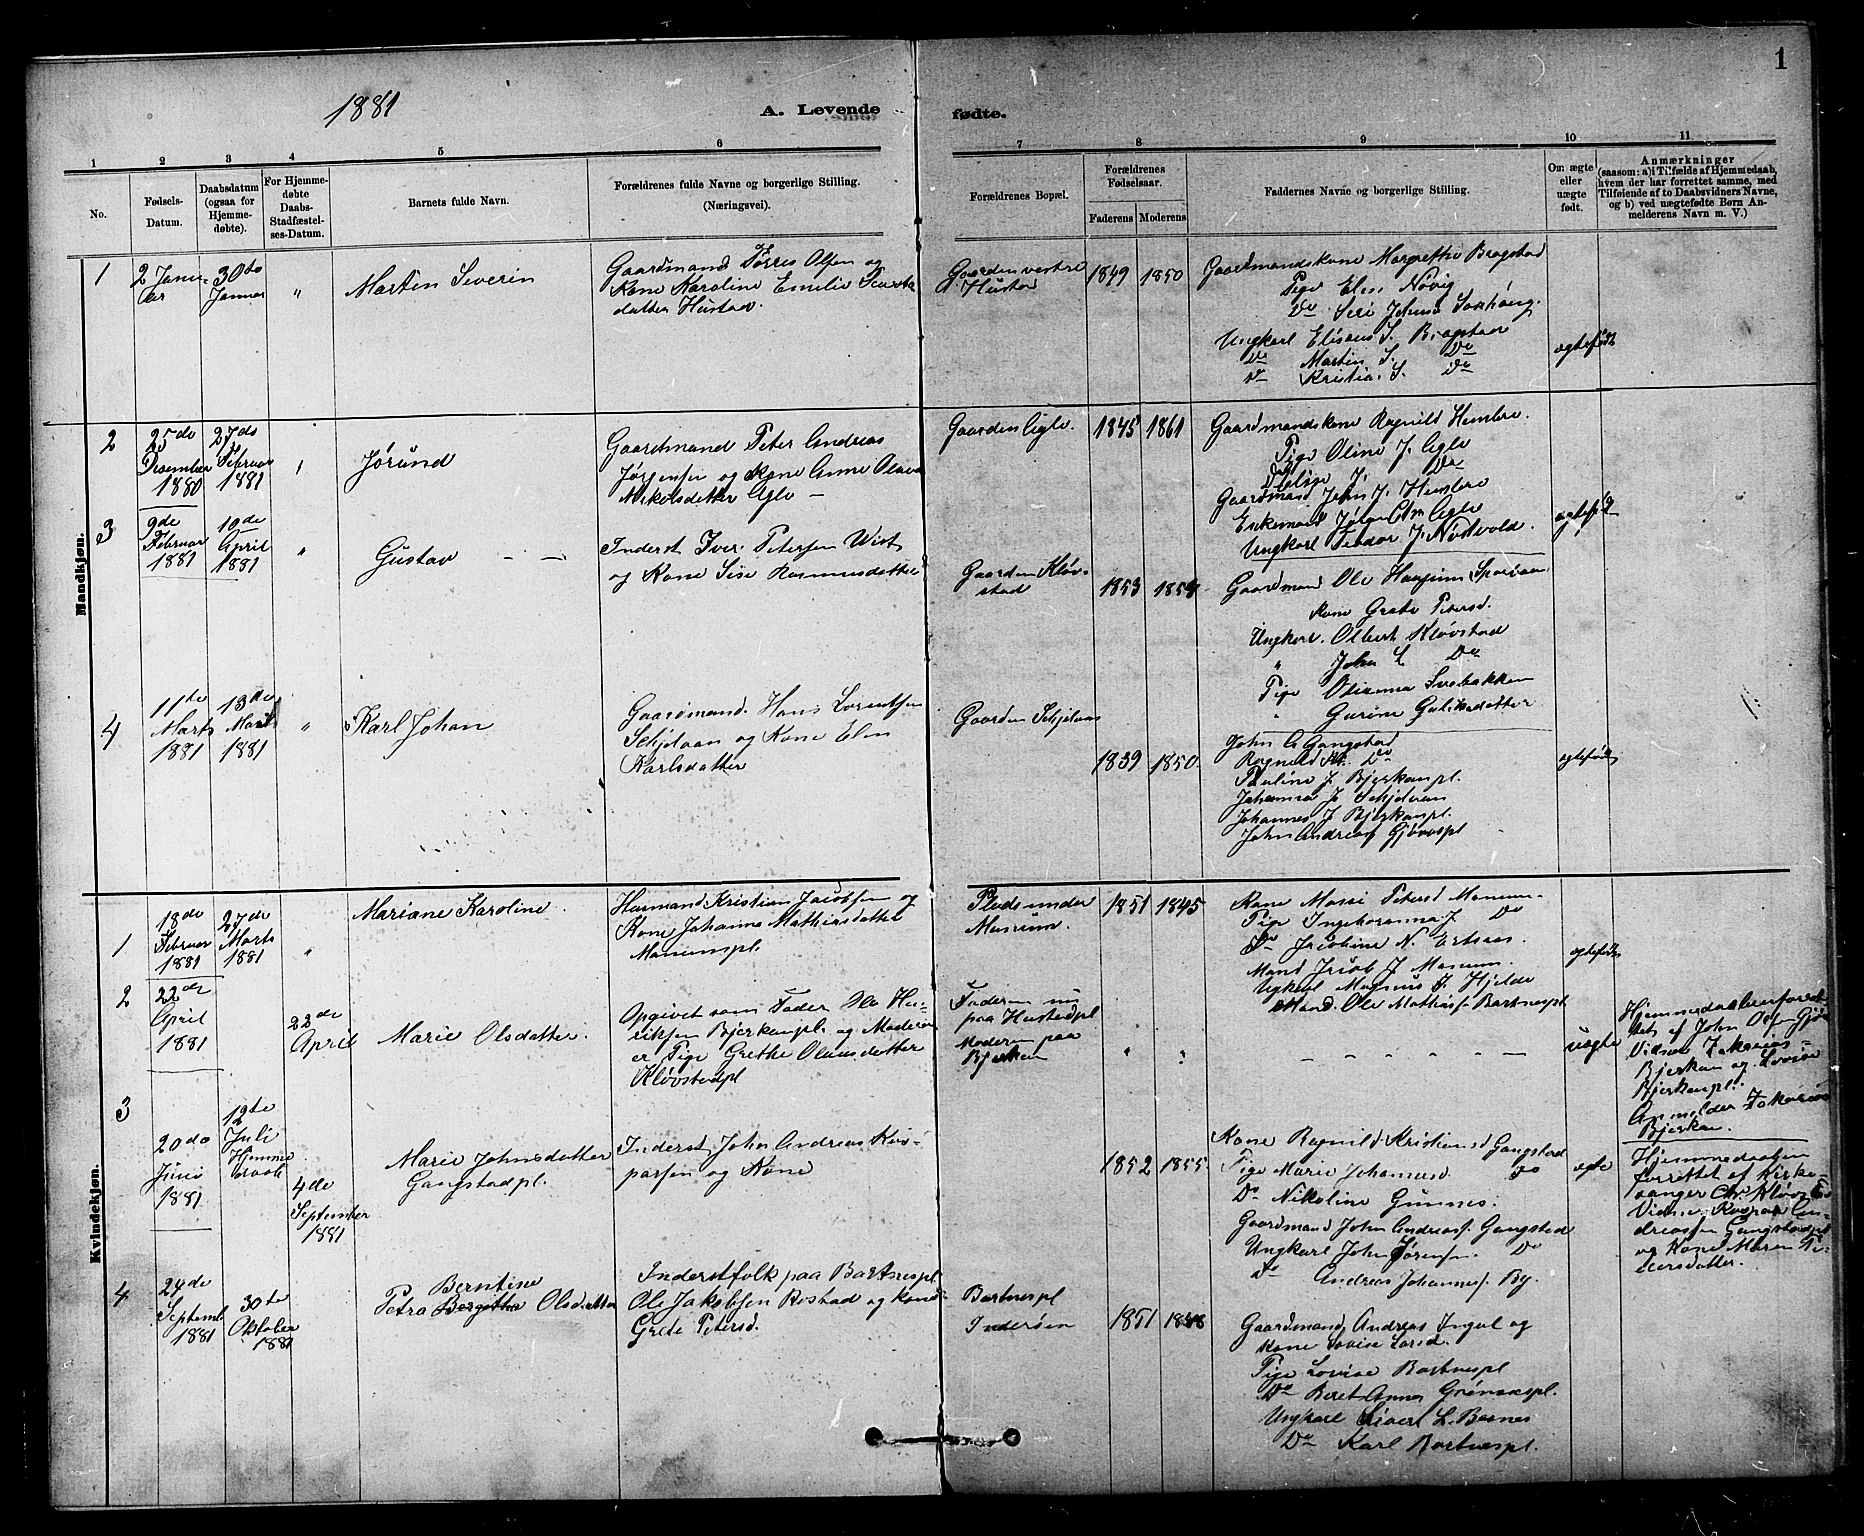 1
1881
A. Levende
fødte.
1
2
3
4
5
6
7
8
9
10
11
No.
Fødsels-
Datum.
Daabsdatum
(ogsaa for
Hjemme-
døbte).
For Hjemme-
døbte
Daabs-
Stadfæstel-
ses-Datum.
Barnets fulde Navn.
Forældrenes fulde Navne og borgerlige Stilling.
(Næringsvei).
Forældrenes Bopæl.
Forældrenes
Fødselsaar.
Faderens
Moderens
Faddernes Navne og borgerlige Stilling.
Om ægte
eller
uægte
født.
Anmærkninger
(saasom: a) i Tilfælde af Hjemmedaab,
hvem der har forrettet samme, med
Tilføiende af to Daabsvidners Navne,
og b) ved uægtefødte Børn An-
melderens Navn m. V.)
Mandkjøn.
1
2 Janu-
ar
30te
Januar
"
Martin Severin
Gaardmand Tørres Olsen og
Kone Karoline Emelie
datter Hustad.
Gaarden vestre
Hustad
1849
1850
Gaardmandskone Margrethe Bragstad
Pige Else Növig
Do Seri Johns
Ungkarl Eliseus S. Bragstad
Do Martin S. Do
Do Kristia. S. Do
ægtefødt
2
25de
Desember
1880
27de
Februar
1881
Jørund
Gaardmand Peter Andreas
Jørgensen og Kone Anne Olava
Nikolsdatter Agle —
Gaarden Agle.
1845
1861
Gaardmandskone Ragnild Hembre.
Pige Oline J. Agle
J. Do
Gaardmand John J. Hembre
Enkemand Agle
Ungkarl Teodor J. Nöstvold.
ægtefødt
3
9de
Februar
1881
10de
April
1881
"
Gustav — —
Inderst Iver Petersen Wist
og Kone Sise Rasmusdatter
Gaarden Kløv-
stad
1853
Gaardmand Ole
Kone Grete Petersd.
Ungkarl. Olbert Kløvstad
" John L Do
Pige Svebakken
" Gurine
4
11te
Marts
1881
13de
Marts
1881
"
Karl Johan
Gaardmand. Hans Lorentsen
Schjelvaan og Kone Elen
Karlsdatter
Gaarden
1839
1850.
John A Gangstad
Ragnild Do
Pauline J. Bjerkanpl.
Johanna J.
Johannes J Bjerkanpl.
John Andreas Gjøvospl
ægtefødt
Kvindekjøn.
1
18de
Februar
1881
27de
Marts
1881
"
Mariane Karoline.
Husmand Kristian Jacobsen og
Kone Johanna Mathiasdatter
Marumspl.
Plads under
1851
1845
Kone Massi Petersd
Pige Ingeboranna J. Do
Do Jacobine N.
Mand Jacob J.
Ugkarl Magnus J. Hjelde
Mand. Ole Mathias Bartnespl
ægtefødt
2
22de
April
1881
22de
April
Marie Olsdatter
Opgivet som Fader Ole Hen-
riksen Bjerkanpl. og Moderen
er Pige Grethe Olausdatter
Kløvstadpl
Faderen nu
paa Hustadpl
Moderen paa
Bjerkan
"
"
— — — — — —
uægte
Hjemmedaaben foret-
tet af John Olsen
Vidner Zakarias
Bjerkan og Lovise
Bjerkanpl.
Anmelder Zakarias
Bjerkan.
3
20de
Juni
1881
12te
Juli
Hjemme
daab
4de
September
1881
Marie Johnsdatter
Gangstadpl.
Inderst John Andreas Kas-
parsen og Kone
1852
1855.
Kone Ragnild Kristiansd Gangstad
Pige Marie Johannesd. Do
Do Nikoline Gunnes.
Gaardmand John Andreas. Gangstad
Ungkarl John Sørensen. Do
Do Andreas Johannes. By.
ægte
Hjemmedaaben
forrettet af Kirke-
sanger Chr. Kløvstad
Vidner Kaspar An-
dreassen Gangstadpl
og Kone Maren Pe-
tersdatter.
4
24de
September
1881
30te
Oktober
1881
Berntine
Petra Olsdatter
Inderstfolk paa Bartnespl.
Ole Jakobsen Rostad og Kone
Grete Petersd.
Bartnespl
Inderøen
1851
Gaardmand Andreas Ingul og
Kone Lovise Larsd.
Pige Lovise Bartnespl
Do Beret Anna Grönaaspl.
Ungkarl Sivert L. Barnes
Do Karl Bartnespl.